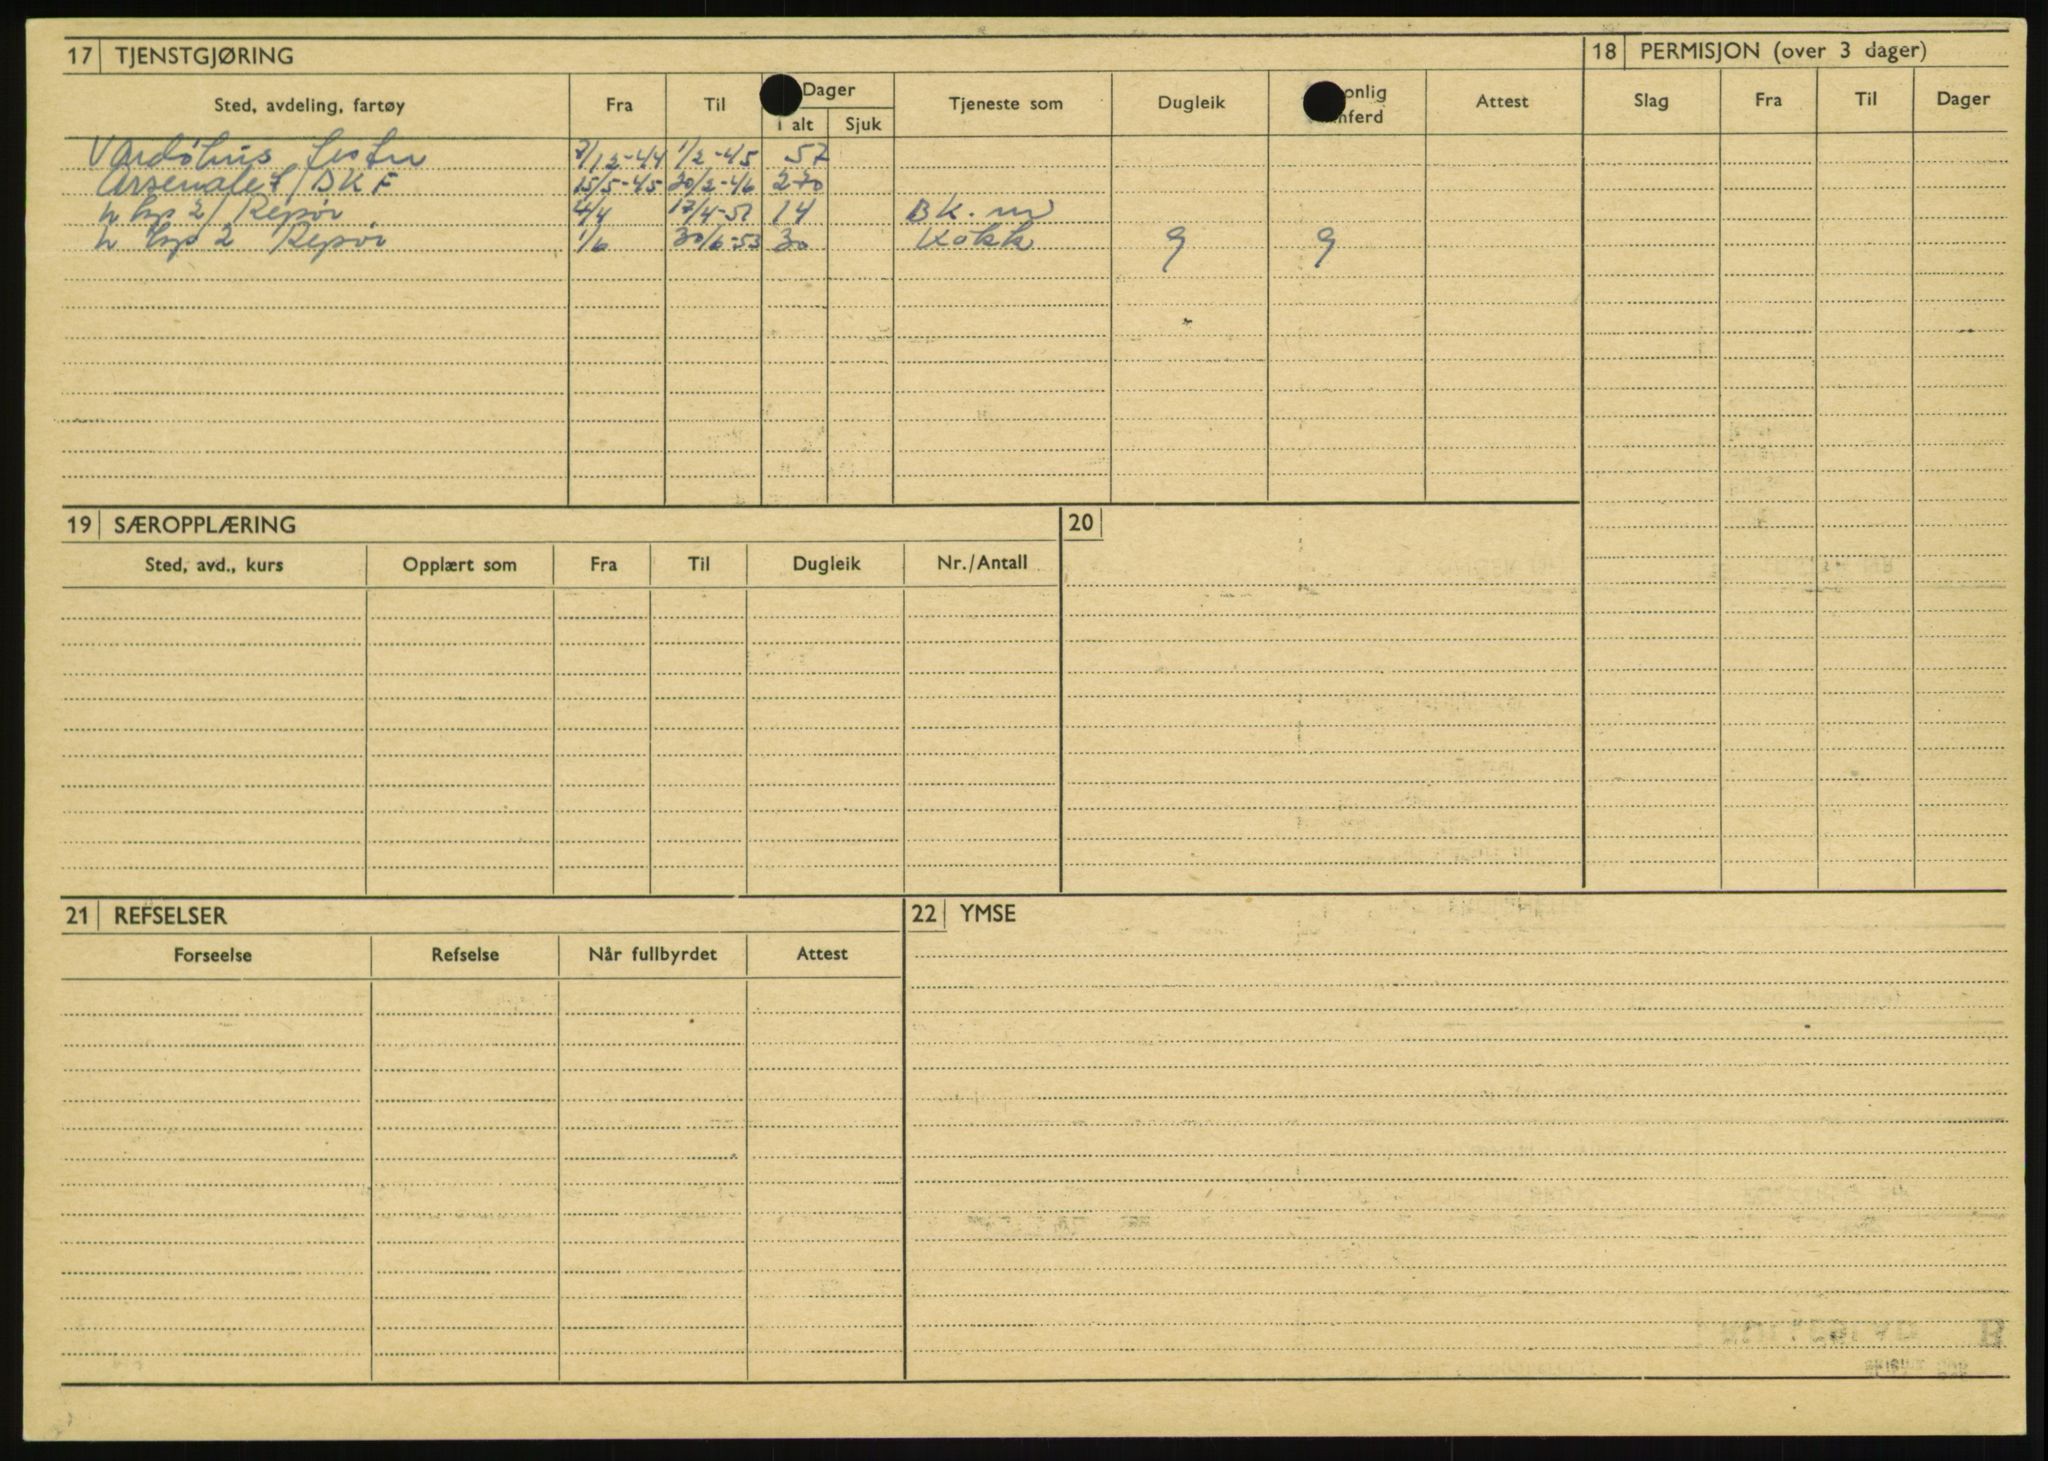 17 TJENSTGJØRING
18 PERMISJON (over 3 dager)
Sted, avdeling, fartøy Fra Til Dager I alt Sjuk Tjeneste som Dugleik onlig nferd Attest
Slag Fra Til Dager
Vardøhus 7/12-44 1/2-45 57
Arsenalet / BKF 15/5-45 20/2-46 270
kp 2/ Repør 4/4 17/4-51 14 BK. m
kp 2 Repør 1/6 30/6-53 30 Kokk g g
19 SÆROPPLÆRING
20
Sted, avd., kurs Opplært som Fra Til Dugleik Nr./Antall
21 REFSELSER
22 YMSE
Forseelse Refselse Når fullbyrdet Attest